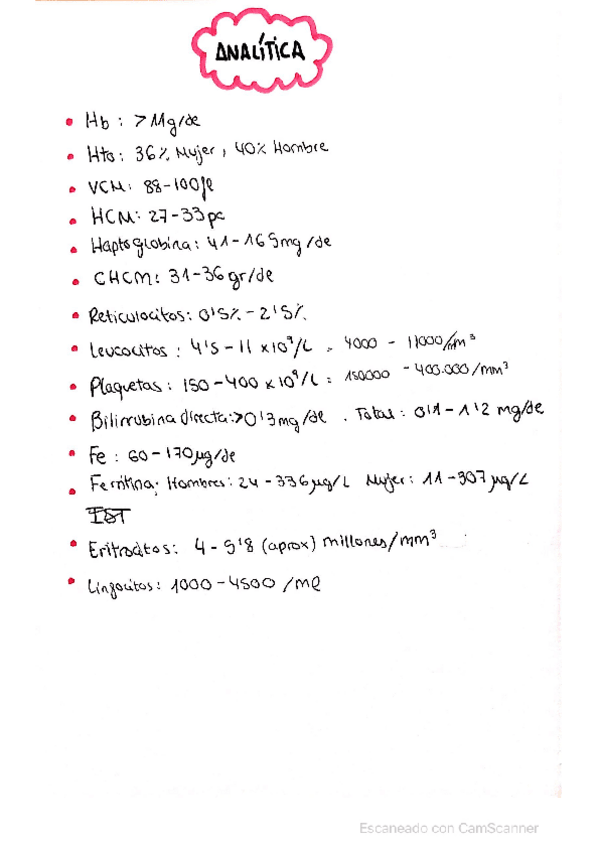 ANALÍTICA
• Hb : > 11g/dl
• Hto: 36% Mujer, 40% Hombre
• VCM: 88-100fl
• HCM: 27-33pg
• Haptoglobina: 41-165mg/dl
• CHCM: 31-36gr/dl
• Reticulocitos: 0'5% - 2'5%
• Leucocitos : 4'5 - 11 x10⁹/L = 4000 - 11000/mm³
• Plaquetas: 150-400 x 10⁹/L = 150000 - 400.000/mm³
• Bilirrubina directa:>0'3mg/dl . Total: 0'1 - 1'2 mg/dl
• Fe : 60-170µg/dl
• Ferritina; Hombres: 24-336µg/L Mujer: 11-307µg/L
IST
• Eritrocitos: 4 - 5'8 (aprox) millones/mm³
• Linfocitos: 1000-4500 /ml
Escaneado con CamScanner